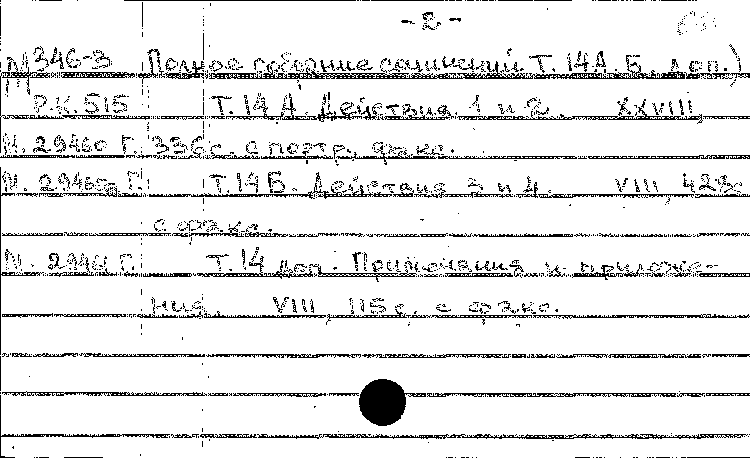 - 2 -
М 346-3 Полное собрание сочинений Т. 14А, Б, доп.)
Р.К. 515 Т. 14 А. Действия 1 и 2. XXVIII,
М. 29460 Г. 336 с. с портр., факс.
М. 29460а Г. Т. 14 Б. Действия 3 и 4. VIII, 428 с
с факс.
М. 29461 Г. Т. 14 доп. Примечания и приложе-
ния. VIII, 115 с. с факс.